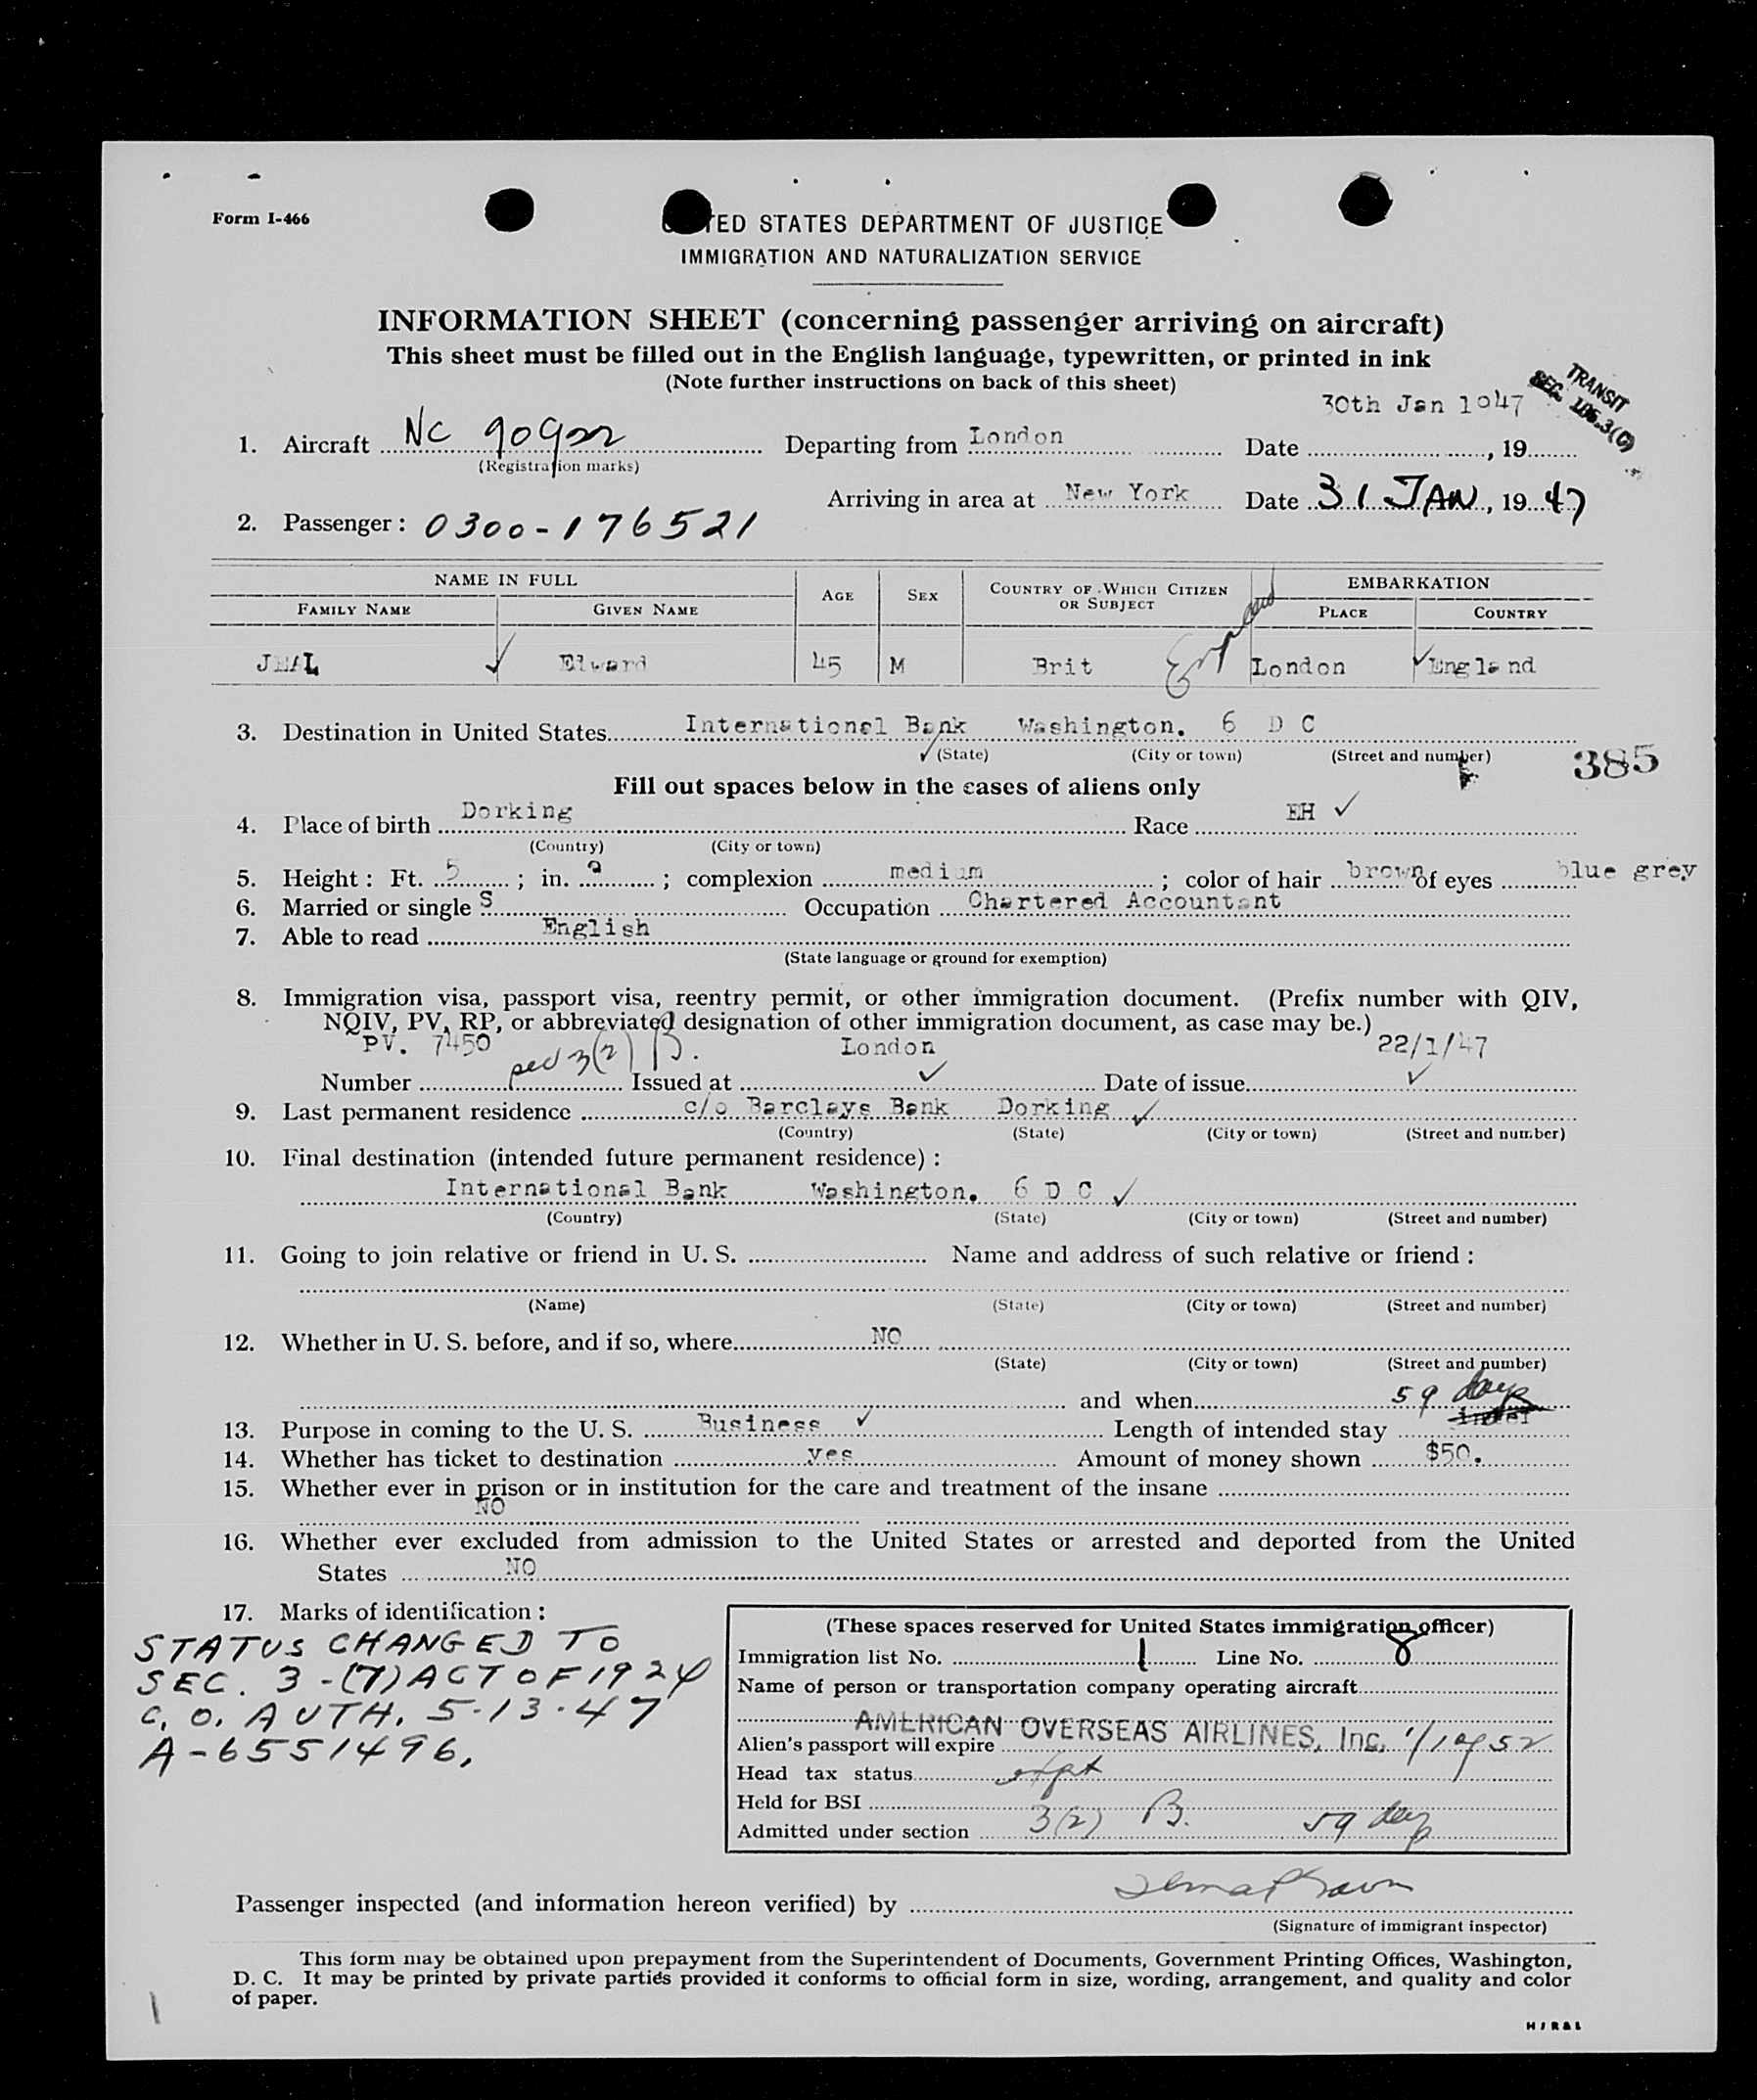 Form I-466
TED STATES DEPARTMENT OF JUSTICE
IMMIGRATION AND NATURALIZATION SERVICE
INFORMATION SHEET (concerning passenger arriving on aircraft)
This sheet must be filled out in the English language, typewritten, or printed in ink
(Note further instructions on back of this sheet)
TRANSIT
SEC. 105.3(C)
30th Jan 1947
1. Aircraft NC 90922 Departing from London Date , 19
(Registration marks)
Arriving in area at New York Date 31 JAN, 19 47
2. Passenger: 0300-176521
NAME IN FULL AGE SEX COUNTRY OF WHICH CITIZEN OR SUBJECT EMBARKATION
FAMILY NAME GIVEN NAME PLACE COUNTRY
JEAL ✓ Elward 45 M Brit England London ✓ England
3. Destination in United States International Bank Washington. 6 D C
✓ (State) (City or town) (Street and number)
385
Fill out spaces below in the cases of aliens only
4. Place of birth Dorking Race EH ✓
(Country) (City or town)
5. Height: Ft. 5; in. 9; complexion medium; color of hair brown of eyes blue grey
6. Married or single S Occupation Chartered Accountant
7. Able to read English
(State language or ground for exemption)
8. Immigration visa, passport visa, reentry permit, or other immigration document. (Prefix number with QIV,
NQIV, PV, RP, or abbreviated designation of other immigration document, as case may be.)
PV. 7450 3(2) B. London 22/1/47
Number Issued at ✓ Date of issue ✓
9. Last permanent residence c/o Barclays Bank Dorking ✓
(Country) (State) (City or town) (Street and number)
10. Final destination (intended future permanent residence):
International Bank Washington. 6 D C ✓
(Country) (State) (City or town) (Street and number)
11. Going to join relative or friend in U. S. Name and address of such relative or friend:
(Name) (State) (City or town) (Street and number)
12. Whether in U. S. before, and if so, where NO
(State) (City or town) (Street and number)
and when 59 days
13. Purpose in coming to the U. S. Business ✓ Length of intended stay
14. Whether has ticket to destination yes Amount of money shown $50.
15. Whether ever in prison or in institution for the care and treatment of the insane
NO
16. Whether ever excluded from admission to the United States or arrested and deported from the United
States NO
17. Marks of identification:
STATUS CHANGED TO
SEC. 3-(7) ACT OF 1924
C. O. AUTH. 5-13-47
A-6551496.
(These spaces reserved for United States immigration officer)
Immigration list No. 1 Line No. 8
Name of person or transportation company operating aircraft
AMERICAN OVERSEAS AIRLINES, Inc.
Alien's passport will expire
Head tax status expt
Held for BSI
Admitted under section 3(2) B. 59 days
Passenger inspected (and information hereon verified) by
(Signature of immigrant inspector)
This form may be obtained upon prepayment from the Superintendent of Documents, Government Printing Offices, Washington,
D. C. It may be printed by private parties provided it conforms to official form in size, wording, arrangement, and quality and color
of paper.